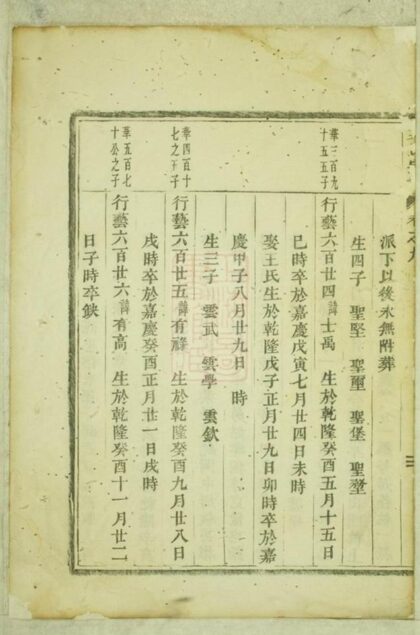 派下以後永無附葬
生四子 聖堅 聖璽 聖堡 聖壐
華三百九
十五五子
行藝六百廿四諱士禹 生於乾隆癸酉五月十五日
巳時卒於嘉慶戊寅七月廿四日未時
娶王氏生於乾隆戊子正月廿九日卯時卒於嘉
慶甲子八月廿九日 時
生三子 雲武 雲學 雲欽
華四百十
七之子
行藝六百廿五諱有祿 生於乾隆癸酉九月廿八日
戌時卒於嘉慶癸酉正月廿一日戌時
華五百七
十公之子
行藝六百廿六諱有高 生於乾隆癸酉十一月廿二
日子時卒缺